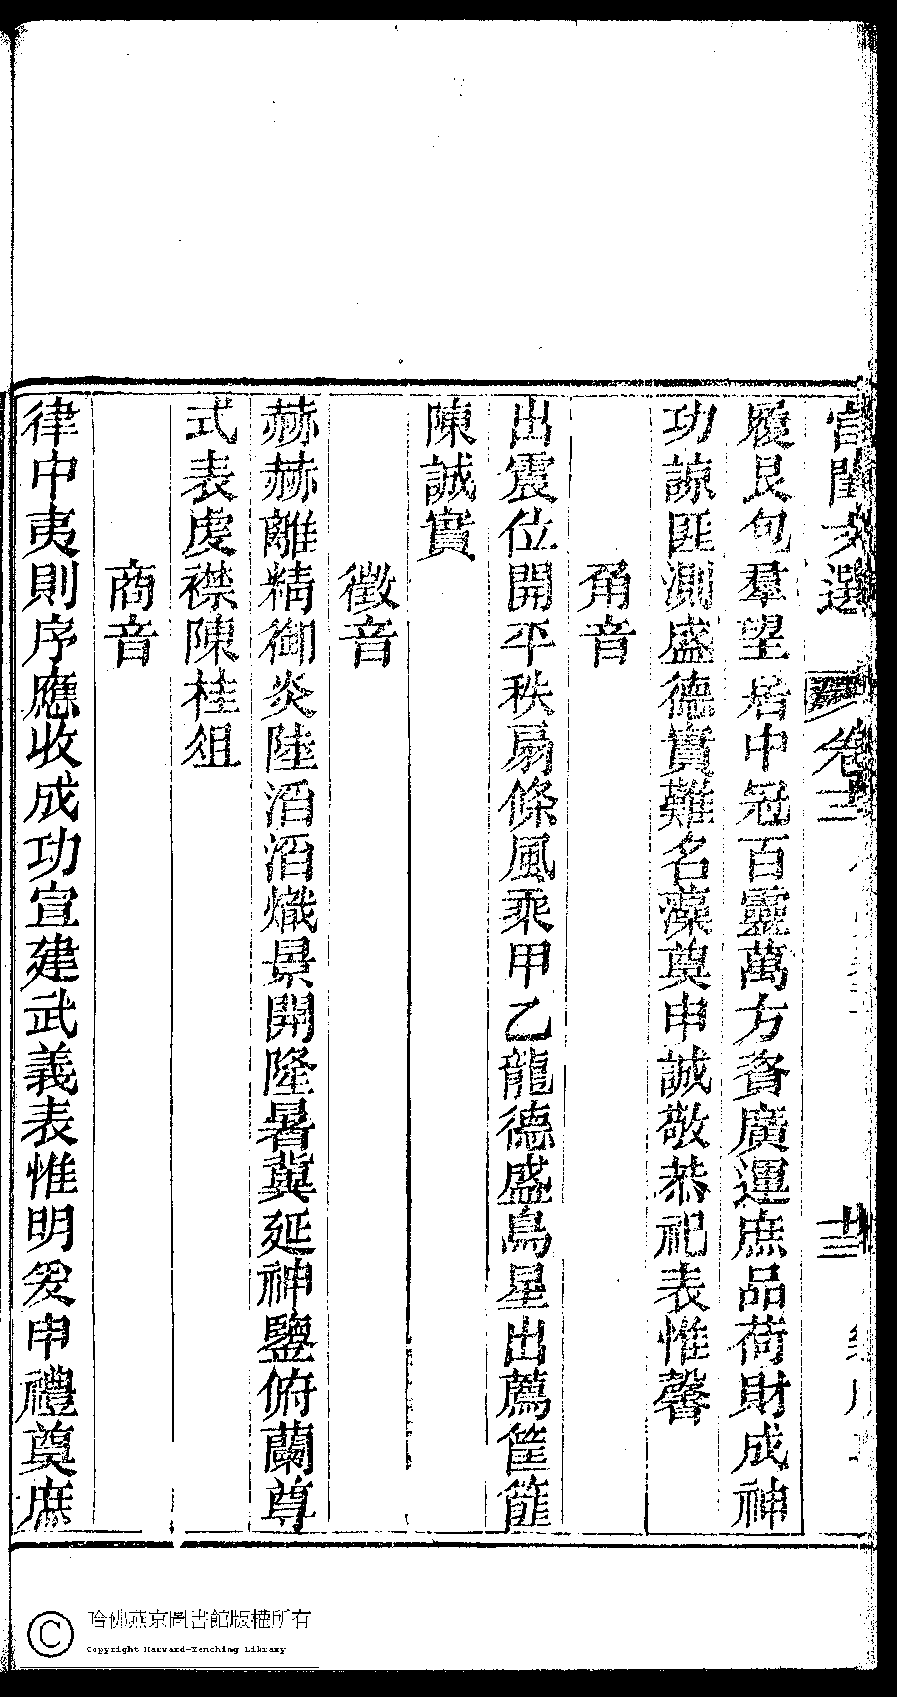 宮閨文選 卷三 三
履艮包羣望居中冠百靈萬方資廣運庶品荷財成神
功諒匪測盛德實難名藻奠申誠敬恭祀表惟馨
角音
出震位開平秩扇條風乘甲乙龍德盛鳥星出薦筐篚
陳誠實
徵音
赫赫離精御炎陸滔滔熾景開隆暑冀延神鑒俯蘭尊
式表虔襟陳桂俎
商音
律中夷則序應收成功宣建武義表惟明爰申禮奠庶
哈佛燕京圖書館版權所有
Copyright Harvard-Yenching Library